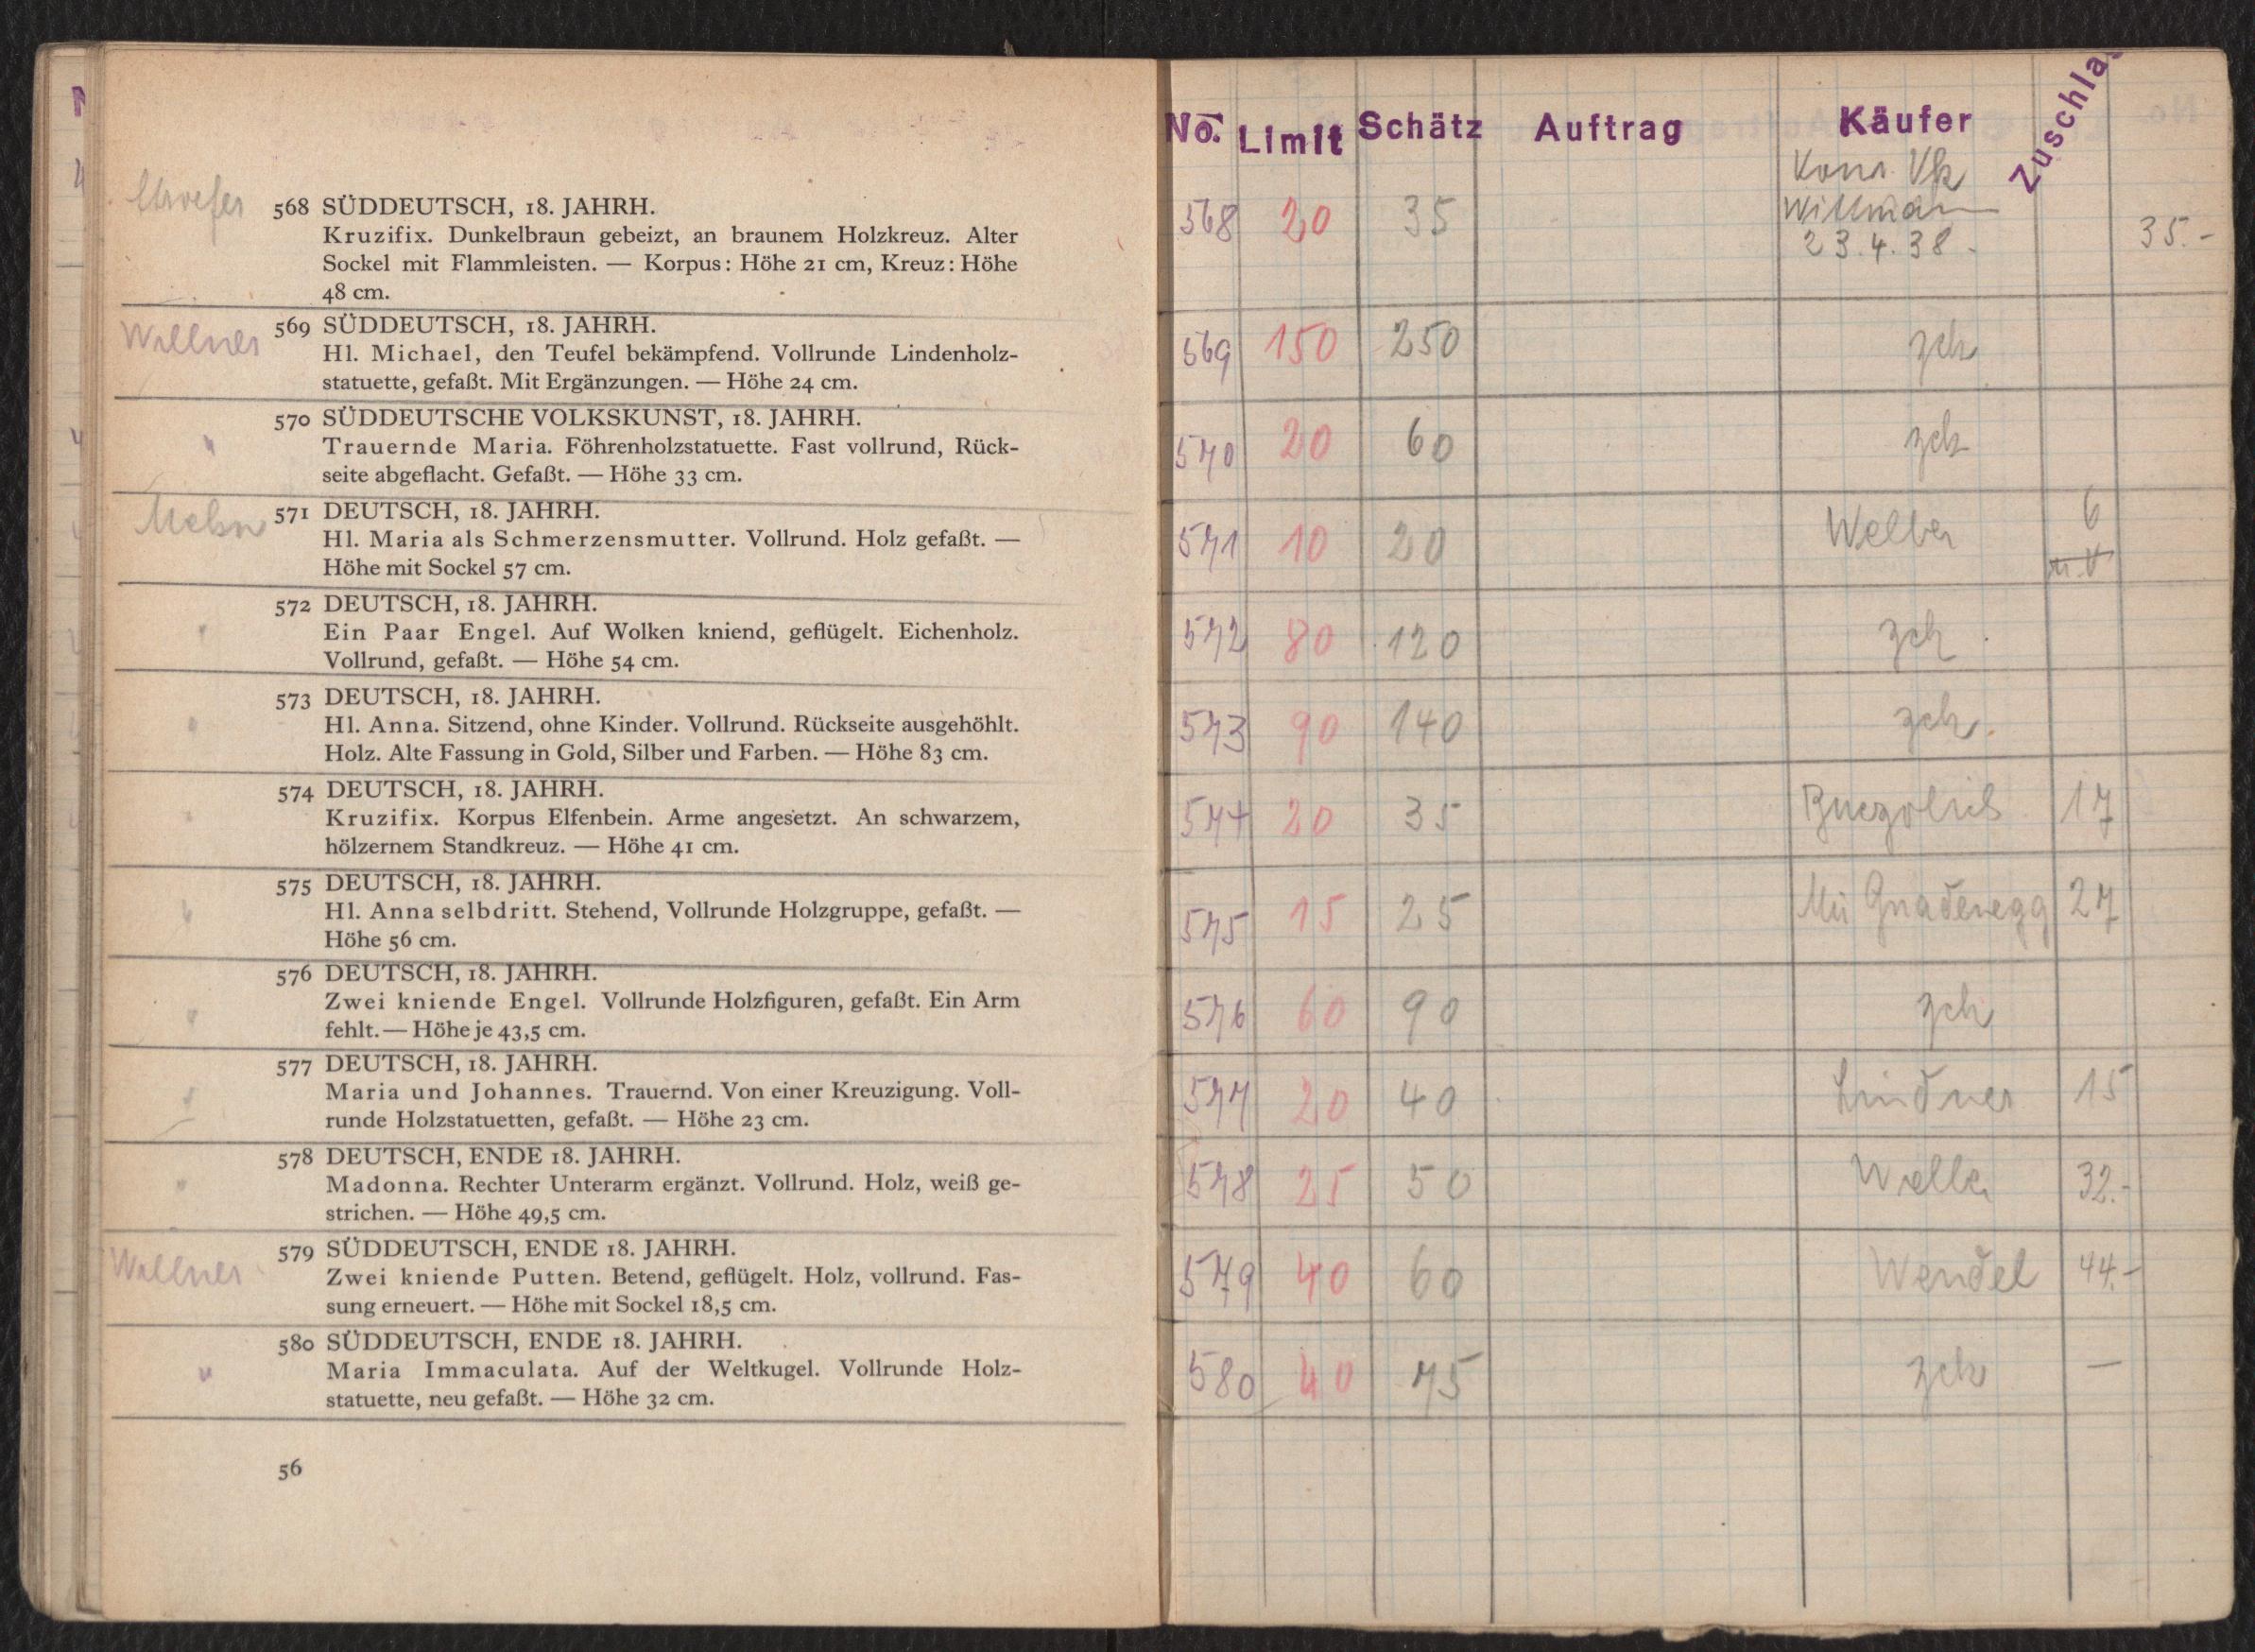 568 SÜDDEUTSCH, 18. JAHRH.
Kruzifix. Dunkelbraun gebeizt, an braunem Holzkreuz. Alter
Sockel mit Flammleisten. — Korpus: Höhe 21 cm, Kreuz: Höhe
48 cm.
Wallner 569 SÜDDEUTSCH, 18. JAHRH.
Hl. Michael, den Teufel bekämpfend. Vollrunde Lindenholz-
statuette, gefaßt. Mit Ergänzungen. — Höhe 24 cm.
" 570 SÜDDEUTSCHE VOLKSKUNST, 18. JAHRH.
Trauernde Maria. Föhrenholzstatuette. Fast vollrund, Rück-
seite abgeflacht. Gefaßt. — Höhe 33 cm.
571 DEUTSCH, 18. JAHRH.
Hl. Maria als Schmerzensmutter. Vollrund. Holz gefaßt. —
Höhe mit Sockel 57 cm.
" 572 DEUTSCH, 18. JAHRH.
Ein Paar Engel. Auf Wolken kniend, geflügelt. Eichenholz.
Vollrund, gefaßt. — Höhe 54 cm.
" 573 DEUTSCH, 18. JAHRH.
Hl. Anna. Sitzend, ohne Kinder. Vollrund. Rückseite ausgehöhlt.
Holz. Alte Fassung in Gold, Silber und Farben. — Höhe 83 cm.
" 574 DEUTSCH, 18. JAHRH.
Kruzifix. Korpus Elfenbein. Arme angesetzt. An schwarzem,
hölzernem Standkreuz. — Höhe 41 cm.
" 575 DEUTSCH, 18. JAHRH.
Hl. Anna selbdritt. Stehend, Vollrunde Holzgruppe, gefaßt. —
Höhe 56 cm.
" 576 DEUTSCH, 18. JAHRH.
Zwei kniende Engel. Vollrunde Holzfiguren, gefaßt. Ein Arm
fehlt. — Höhe je 43,5 cm.
" 577 DEUTSCH, 18. JAHRH.
Maria und Johannes. Trauernd. Von einer Kreuzigung. Voll-
runde Holzstatuetten, gefaßt. — Höhe 23 cm.
" 578 DEUTSCH, ENDE 18. JAHRH.
Madonna. Rechter Unterarm ergänzt. Vollrund. Holz, weiß ge-
strichen. — Höhe 49,5 cm.
Wallner 579 SÜDDEUTSCH, ENDE 18. JAHRH.
Zwei kniende Putten. Betend, geflügelt. Holz, vollrund. Fas-
sung erneuert. — Höhe mit Sockel 18,5 cm.
" 580 SÜDDEUTSCH, ENDE 18. JAHRH.
Maria Immaculata. Auf der Weltkugel. Vollrunde Holz-
statuette, neu gefaßt. — Höhe 32 cm.
56
No. Limit Schätz Auftrag Käufer Zuschla
568 20 35 Vk
23.4.38. 35.-
569 150 250 zch
570 20 60 zch
571 10 20 6
572 80 120 zch
573 90 140 zch.
574 20 35 17
575 15 25 Gnadenegg 27
576 60 90 zch
577 20 40 Lindner 15
578 25 50 32.-
579 40 60 Wendel 44.-
580 40 75 zch —